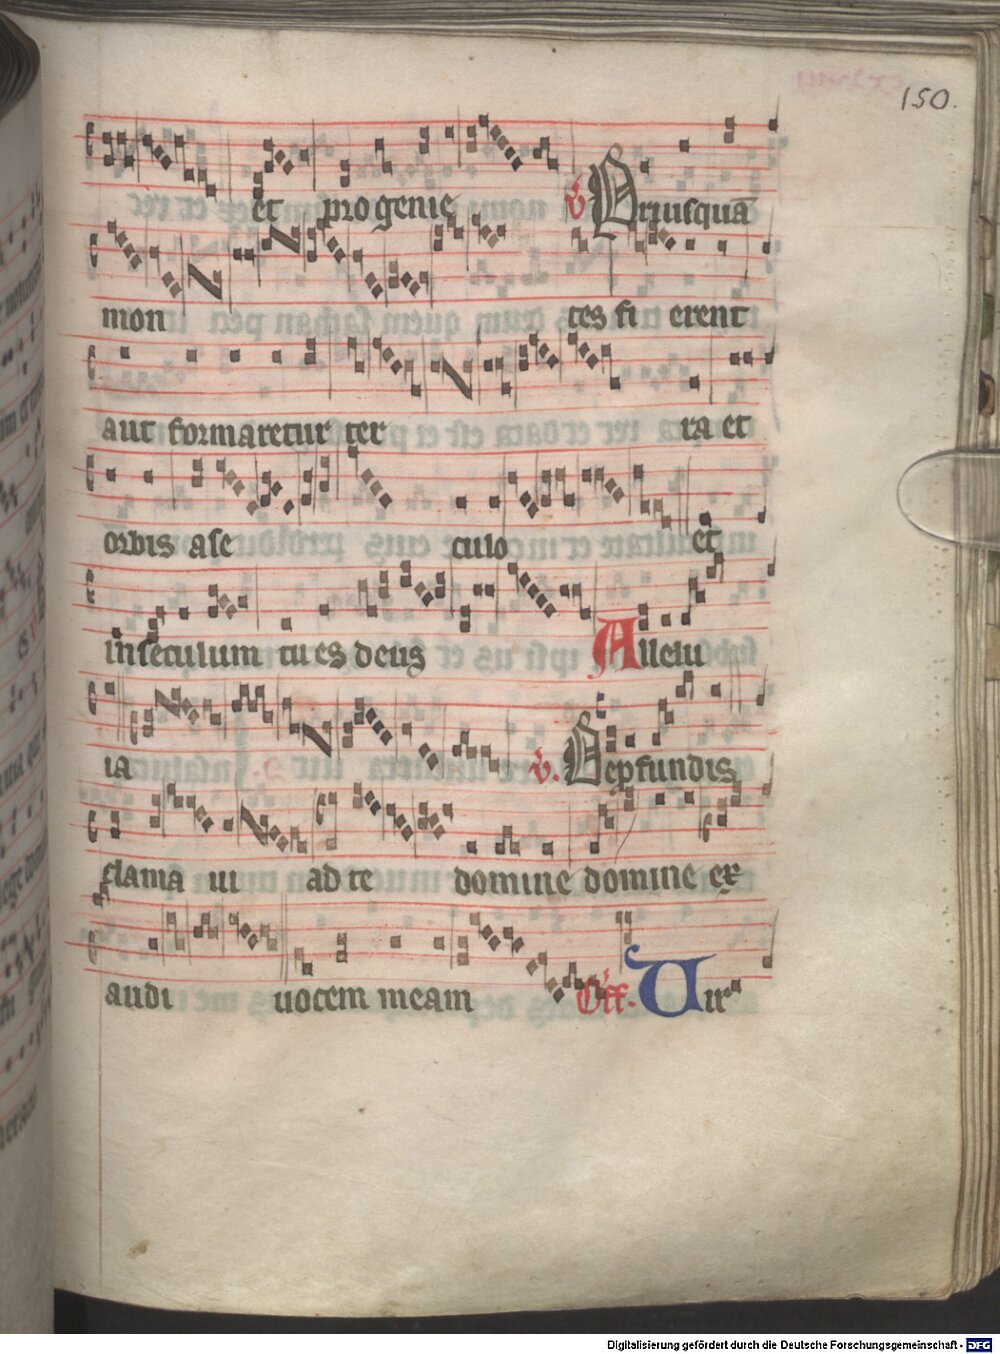 150.
et progenie ℣ Priusquā
mon tes fi erent
aut formaretur ter ra et
orbis a se culo et
in seculum tu es deus Alleiu
ia ℣. De pfundis
clama ui ad te domine domine ex
audi uocem meam Off. Uir
Digitalisierung gefördert durch die Deutsche Forschungsgemeinschaft - DFG